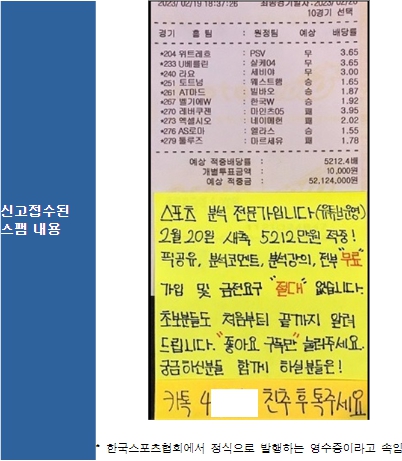 신고접수된
스팸 내용
2023/02/19 18:37:26
10경기 선택
경기 홈 팀 : 원정팀 예상 배당률
*204 위트레흐 : PSV 무 3.65
*233 U베를린 : 살케04 무 3.65
*240 라요 : 세비야 무 3.00
*251 토트넘 : 웨스트햄 승 1.65
*261 AT마드 : 빌바오 승 1.87
*267 벨기에W : 한국W 승 1.92
*270 레버쿠젠 : 마인츠05 패 3.95
*273 엑셀시오 : 네이메헌 패 2.02
*276 AS로마 : 엘라스 승 1.55
*279 툴루즈 : 마르세유 패 1.78
예상 적중배당률 : 5212.4배
개별투표금액 : 10,000원
예상 적중금 : 52,124,000원
스포츠 분석 전문가입니다
2월 20일 새축 5212만원 적중!
픽공유, 분석코멘트, 분석강의, 전부 "무료"
가입 및 금전요구 "절대" 없습니다.
초보분들도 처음부터 끝까지 알려
드립니다. "좋아요 구독만" 눌러주세요.
궁금하신분들 함께 하실분들은!
카톡 4 친추 후 톡주세요
* 한국스포츠협회에서 정식으로 발행하는 영수증이라고 속임